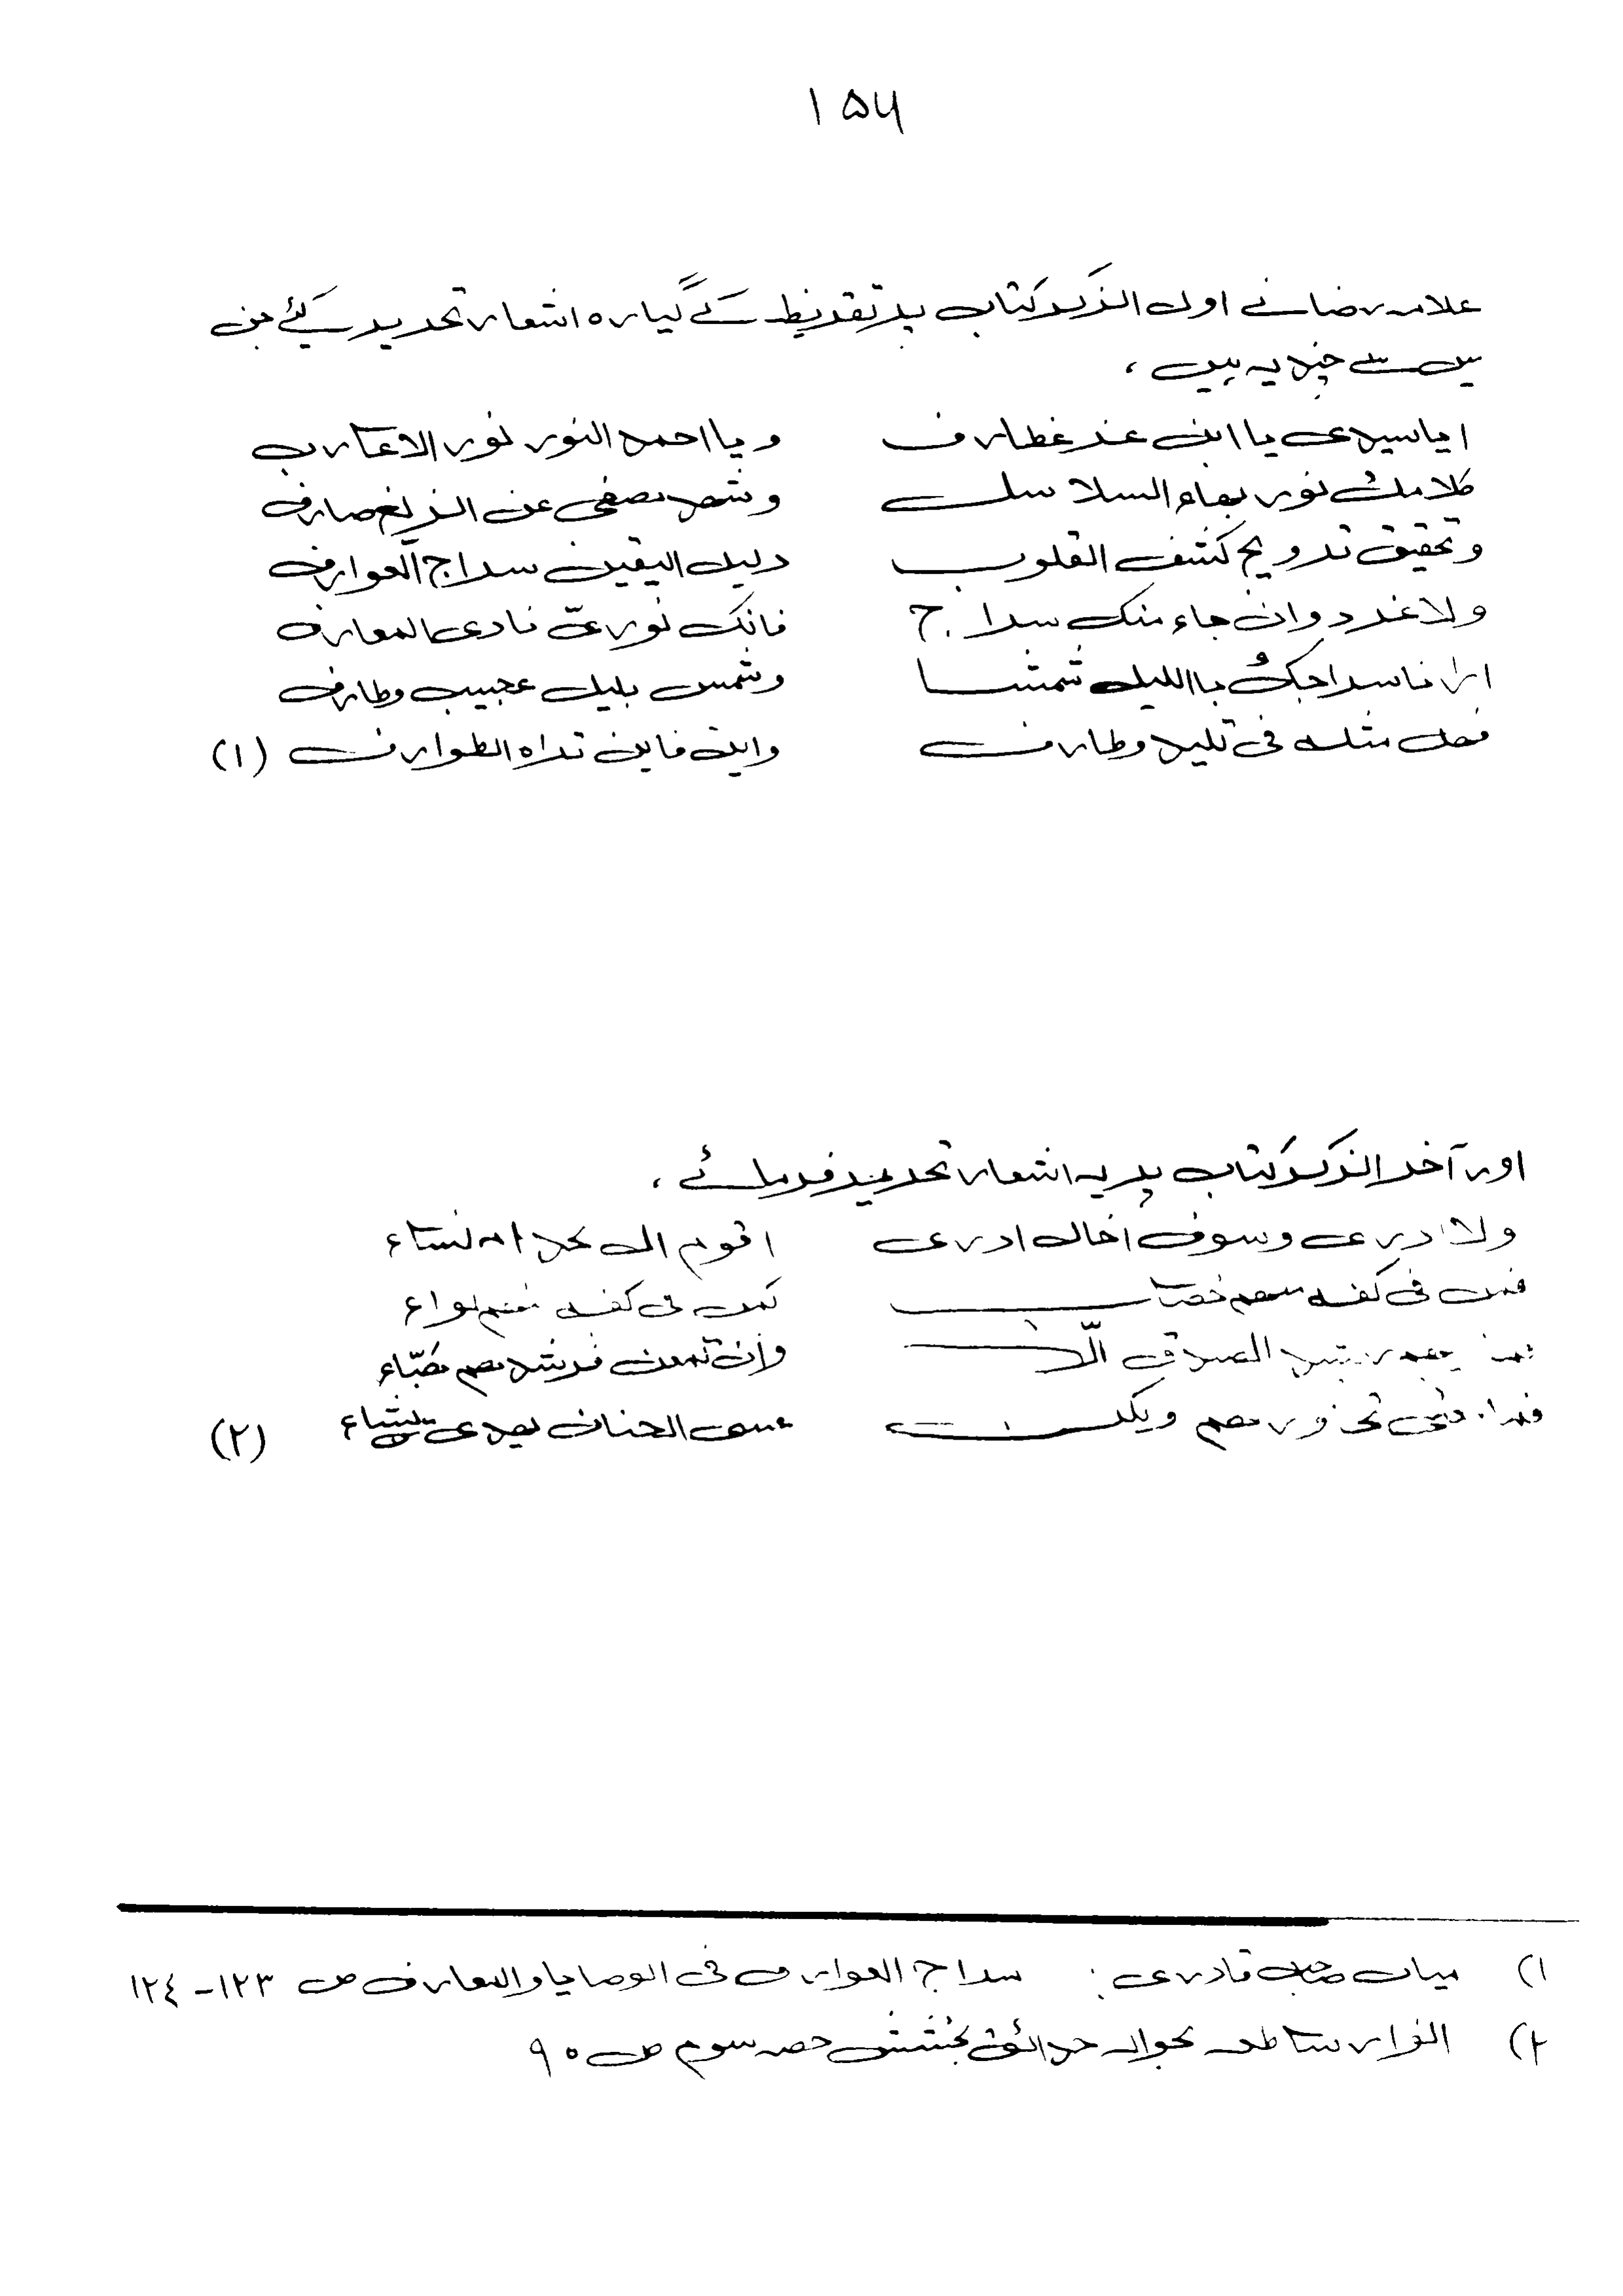 ۱۵۶
علامہ رضا نے اول الذکر کتاب پر تقریظ کے گیارہ اشعار تحریر کیئے جن
میں سے چند یہ ہیں ،
ایا سیدی یا ابن غر غطارف ویا احمد النور نور الاعارب
کلامک نور بھام السلاسل وشھد مصفی عن الزیغ صارف
وتحقیق ترویح کشف القلوب دلیل الیقین سراج العوارف
ولا غرر وان جاء منک سراج فانک نوریّ نادی المعارف
ارانا سراجک باللیل شمسا وشمس بلیل عجیب وطارف
فھل مثلہ فی تلید وطارف واین فاین تراہ الطوارف (۱)
اور آخر الذکر کتاب پر یہ اشعار تحریر فرمائے ،
ولا ادری وسوف اخال ادری اقوم ال نجد ام نساء
فمن فی کفہ منھم خضاب کمن فی کفہ منھم لواء
الصدق الّا وان تمعن فرشدھم ھباء
ویکن عسی الحنان یھدی من یشاء (۲)
۱) میاں صاحب قادری : سراج العوارف فی الوصایا والمعارف ص ۱۲۳-۱۲٤
۲) انوار ساطعہ بحوالہ حدائق بخشش حصہ سوم ص ۹۰